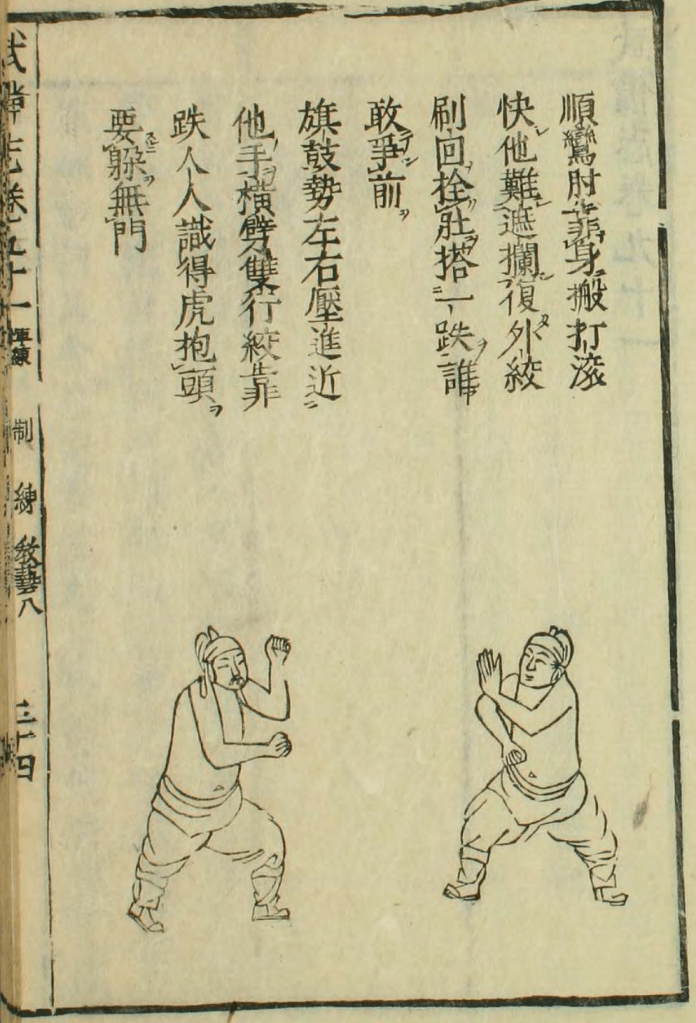 順鸞肘靠身搬打滾
快他難遮攔復外絞
刷回拴肚搭一跌誰
敢爭前
旗鼓勢左右壓進近
他手橫劈雙行絞靠
跌人人識得虎抱頭
要躲無門
武備志卷九十一
陣練
制
練
教藝八
三十四